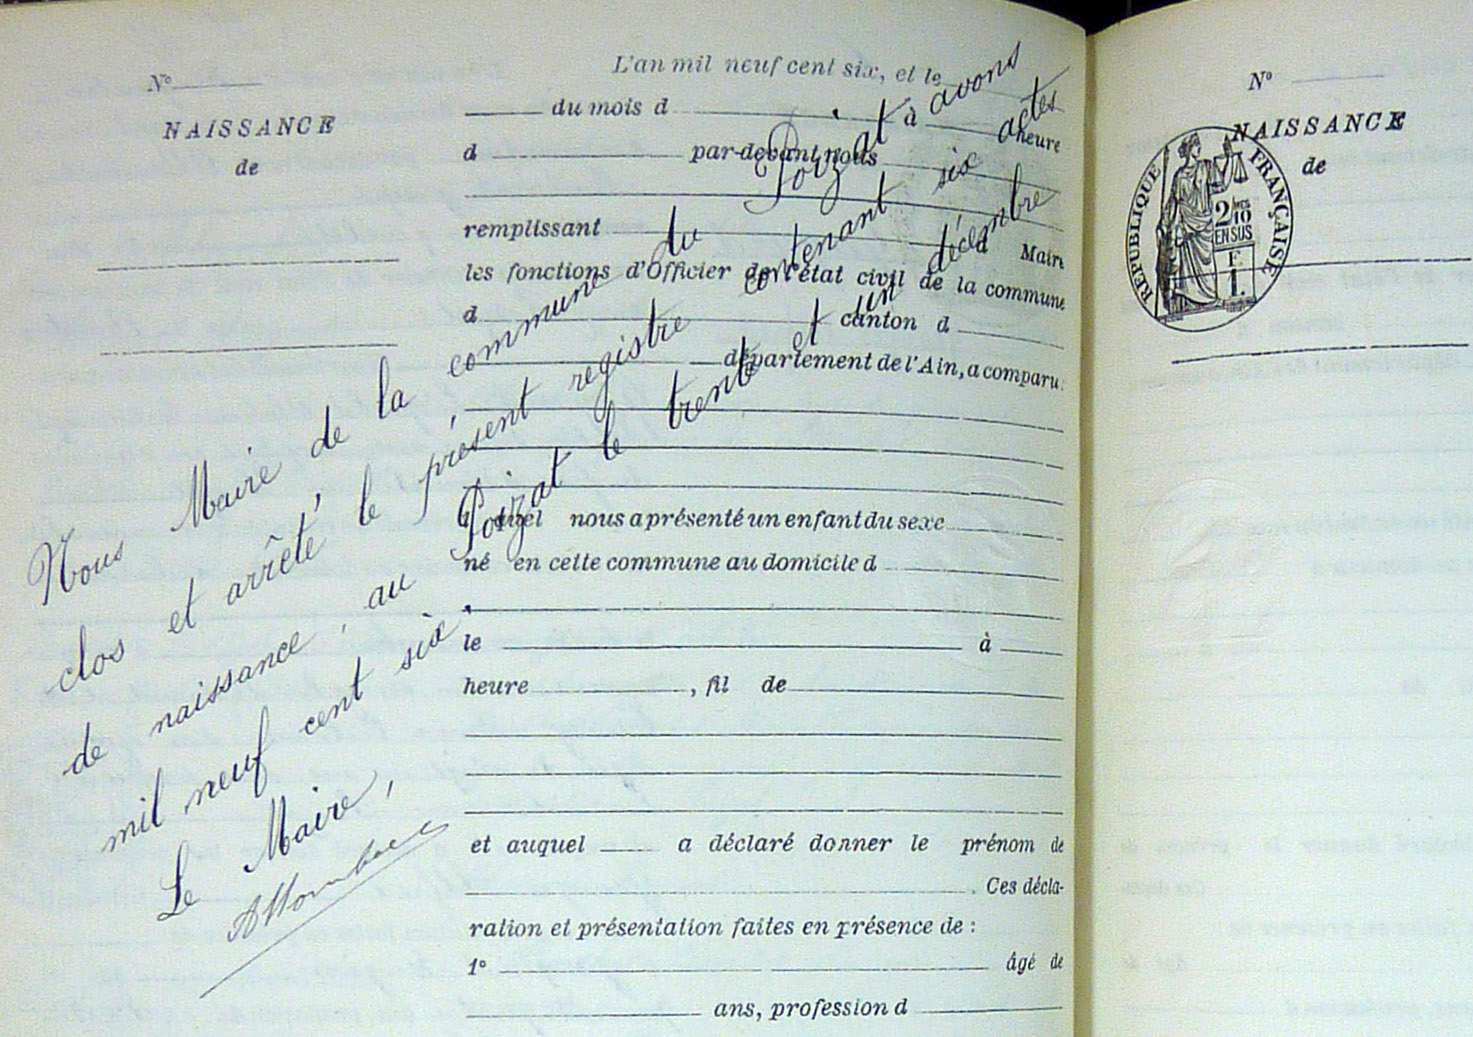 N°
NAISSANCE
de
L'an mil neuf cent six, et le
du mois d à
heure
d par-devant nous
remplissant d Maire
les fonctions d'Officier de l'état civil de la commune
d canton d
département de l'Ain, a comparu:
lequel nous a présenté un enfant du sexe
né en cette commune au domicile d
le à
heure , fil de
et auquel a déclaré donner le prénom de
Ces décla-
ration et présentation faites en présence de :
1° âgé de
ans, profession d
Nous Maire de la commune du Poizat avons
clos et arrêté le présent registre contenant six actes
de naissance, au Poizat le trente et un décembre
mil neuf cent six.
Le Maire,
N°
NAISSANCE
de
RÉPUBLIQUE FRANÇAISE
2/10
EN SUS
F.
1.